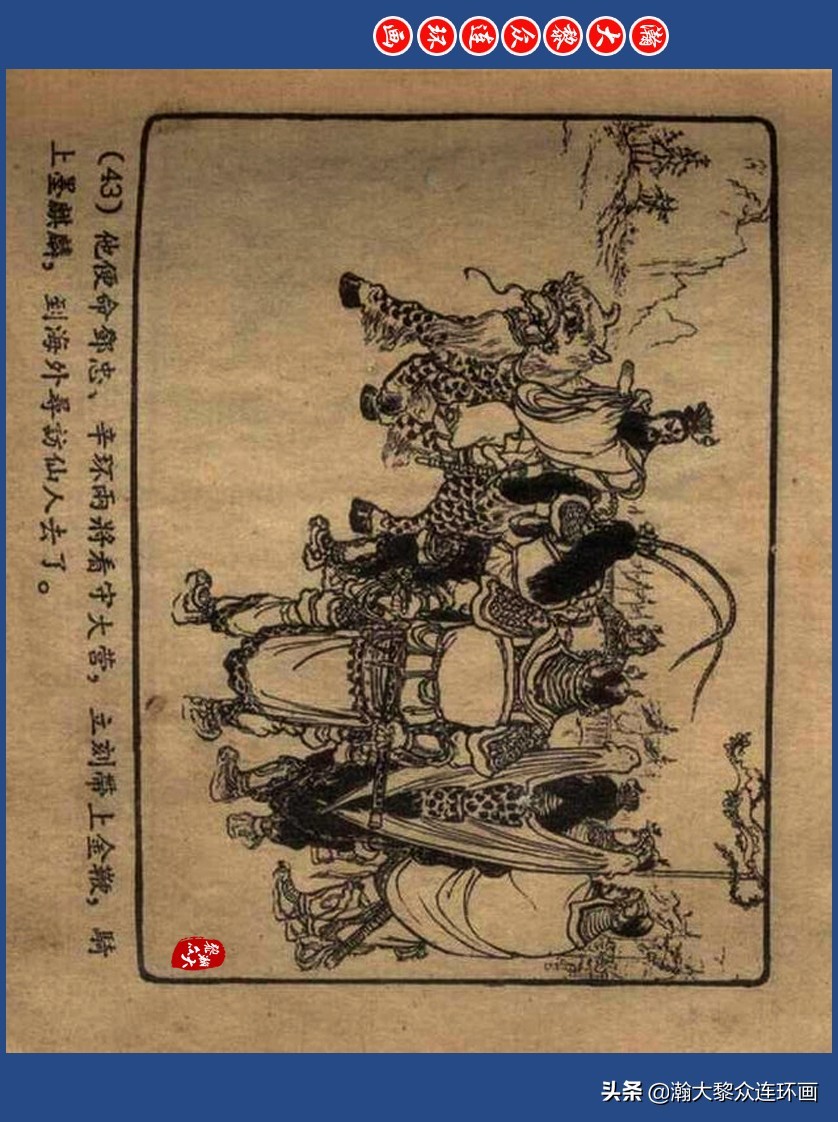 瀚大黎众连环画
(43) 他便命鄧忠、辛环兩將看守大营，立刻带上金鞭，騎
上墨麒麟，到海外尋訪仙人去了。
瀚大
黎众
头条 @瀚大黎众连环画